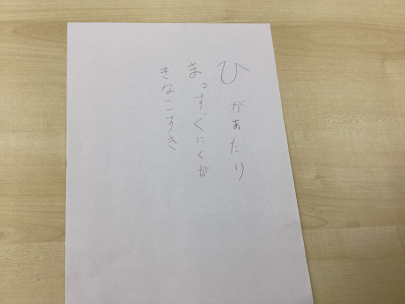 ひがあたり
まっすぐにくが
きなこずき